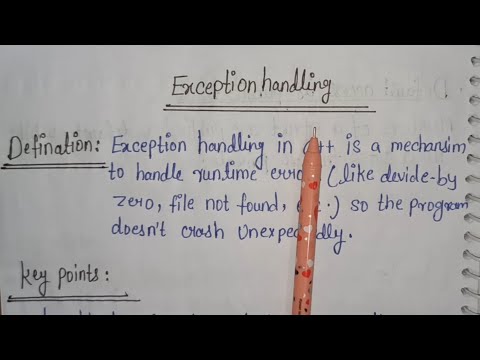 Exception handling
Defination: Exception handling in C++ is a mechansim
to handle runtime erro (like devide-by
zero, file not found, .) so the program
doesn't crash Unexpe dly.
Key points: